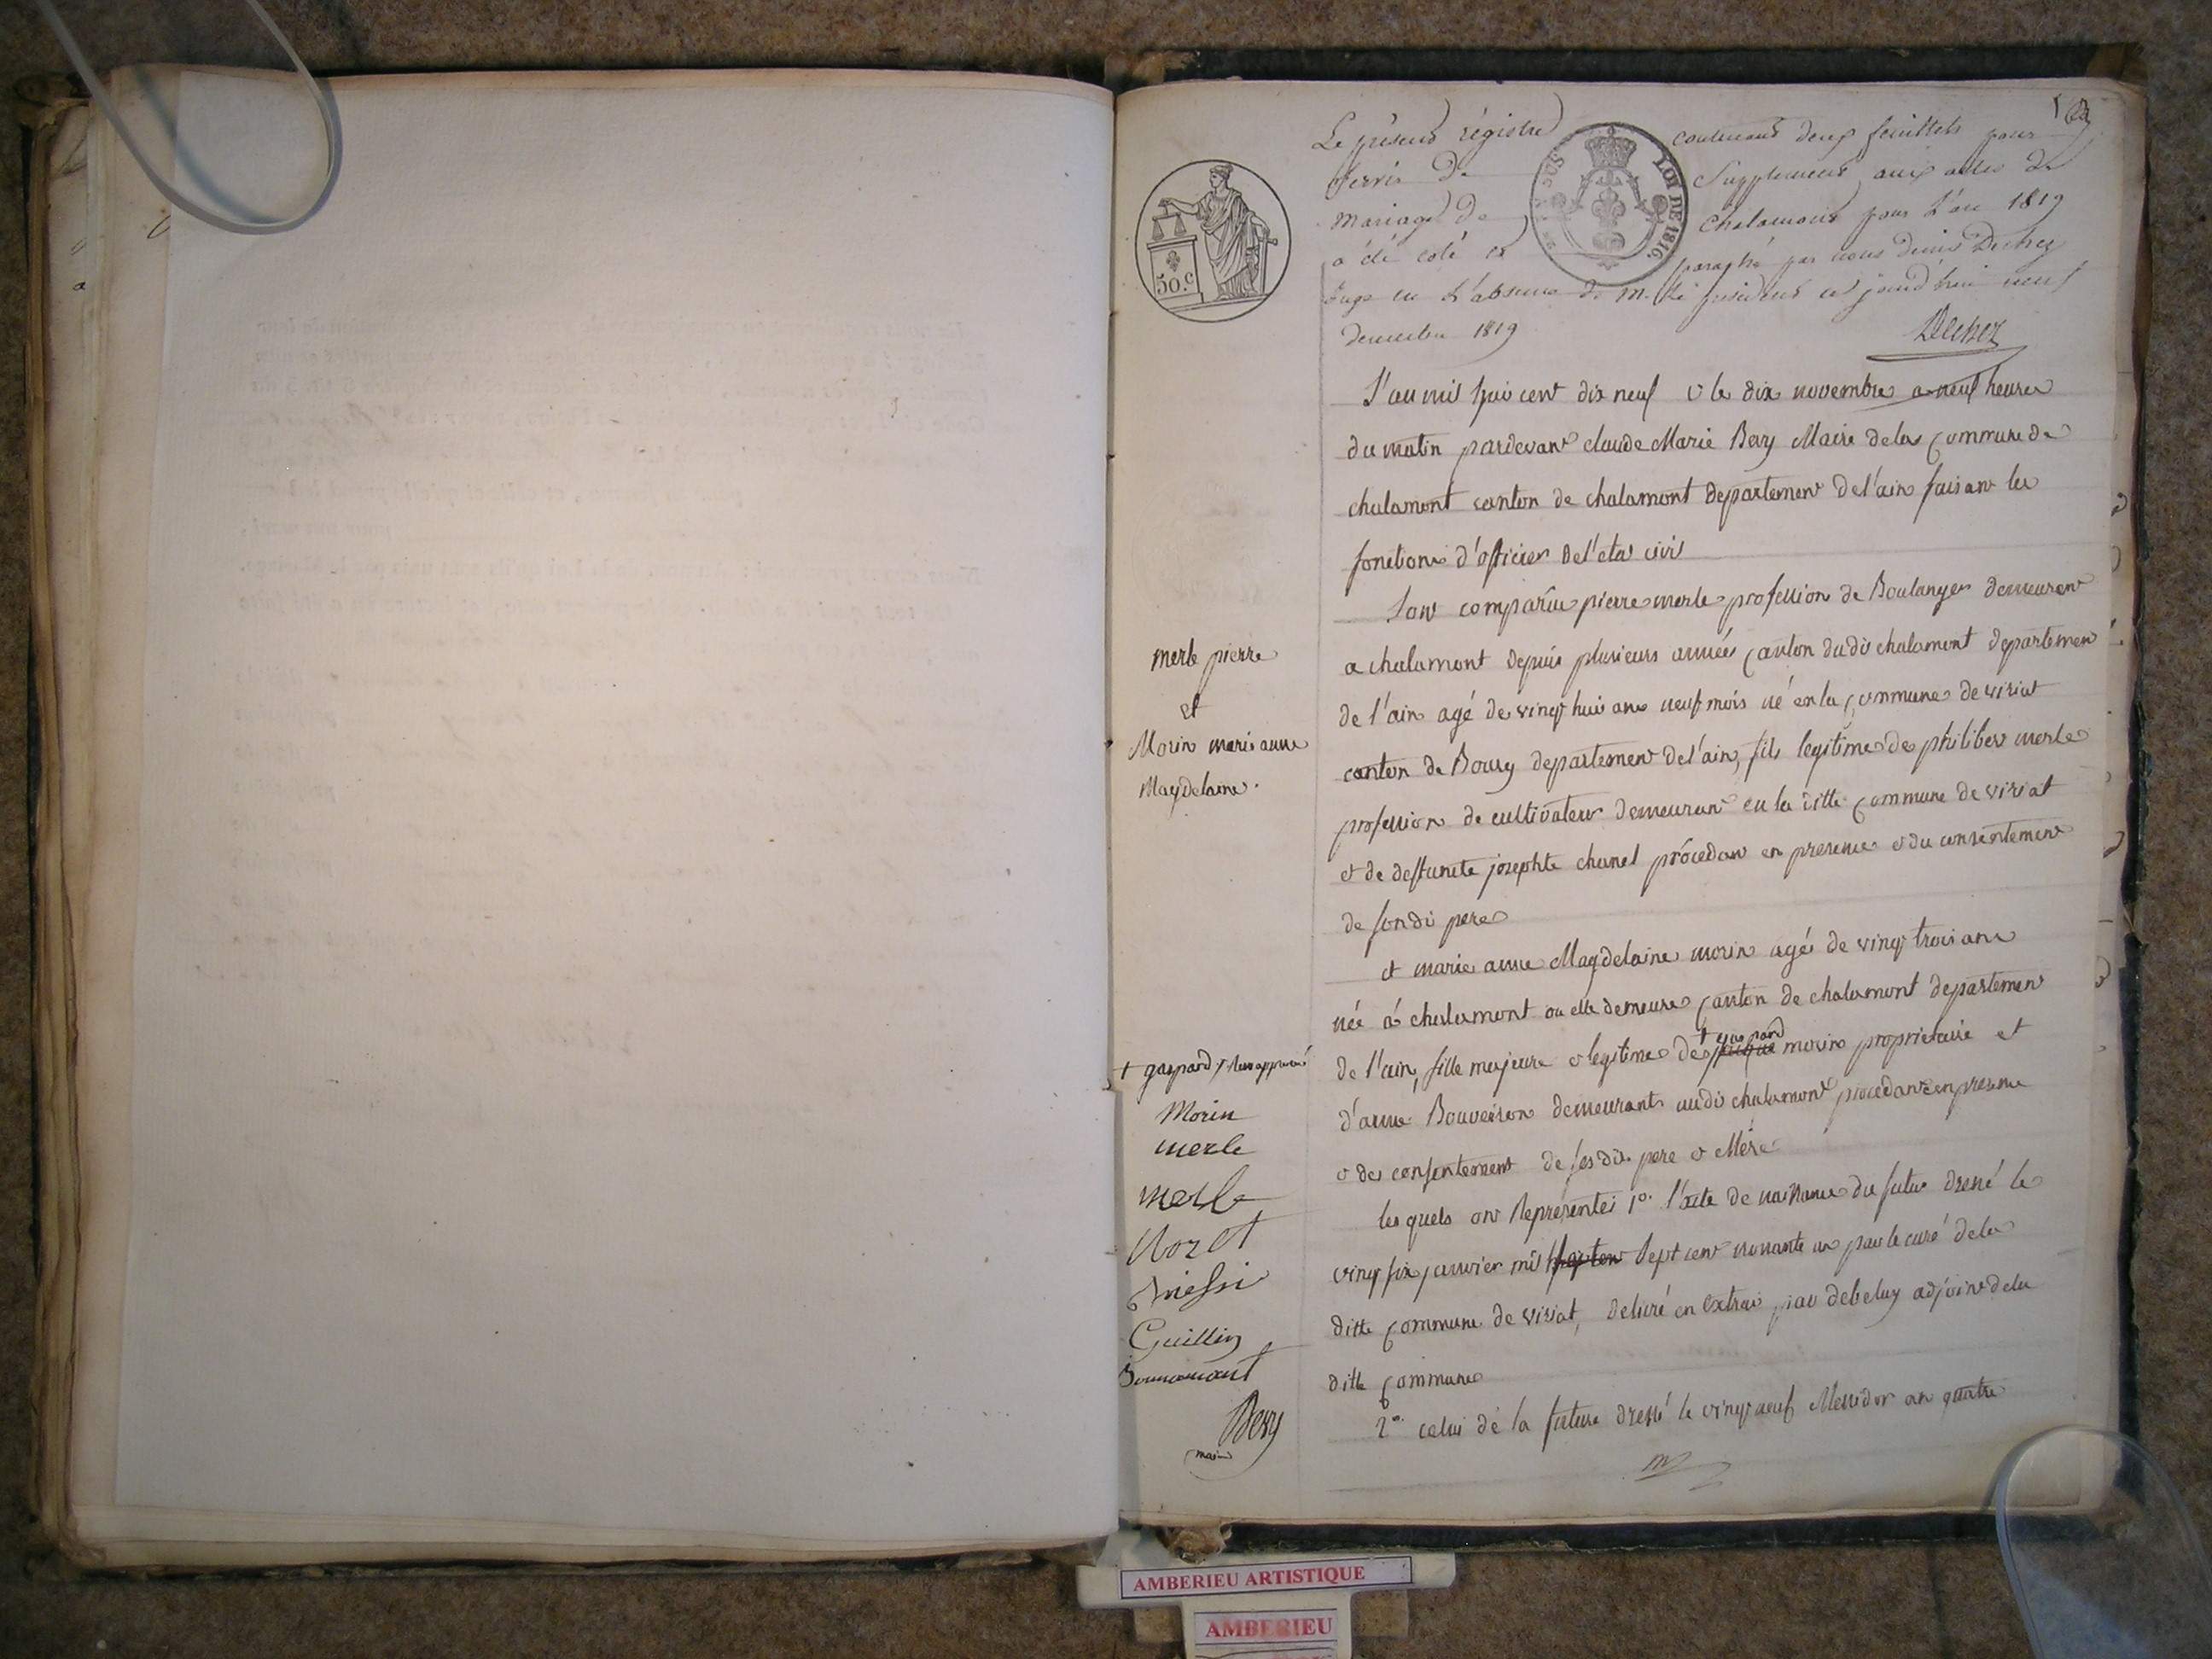 Le présent régistre contenant deux feuillets pour
servir de Supplement aux actes de
mariage de chalamont pour l'an 1819
a été coté et paraphé par nous Denis Dechez
Juge en l'absence de M. le president ce jourd'hui neuf
decembre 1819
Dechez
SUS
LOI DE 1816.
50.c
L'an mil huit cent dix neuf & le dix novembre a neuf heures
du matin pardevant claude Marie Bery Maire dela Commune de
chalamont canton de chalamont departement de l'ain faisant les
fonctions d'officier de l'etat civil
Sont comparu pierre merle profession de Boulanger demeurant
a chalamont depuis plusieurs années Canton dudit chalamont departement
de l'ain agé de vingt huit ans neuf mois né en la Commune de viriat
canton de Bourg departement de l'ain, fils legitime de philibert merle
profession de cultivateur demeurant en la ditte Commune de viriat
& de deffuncte josephte chanel procedant en presence & du consentement
de sondit pere
& marie anne Magdelaine morin agé de vingt trois ans
née á chalamont ou elle demeure Canton de chalamont departement
de l'ain, fille majeure & legitime de + gaspard morin proprietaire et
d'anne Bouveiron demeurants audit chalamont procedante en presence
& de consentement de sesdit pere & Mére
les quels ont Representés 1º. l'acte de naissance du futur dressé le
vingt six janvier mil sept cent nonante un par le curé de la
ditte Commune de viriat, delivré en Extrait par debeluy adjoint dela
ditte Commune
2º. celui de la future dressé le vingt neuf Messidor an quatre
merle pierre
et
Morin marie anne
Magdelaine.
+ gaspard / Renv approuvé
Morin
merle
merle
Guillin
Bonnamant
Bery
maire
AMBERIEU ARTISTIQUE
AMBERIEU